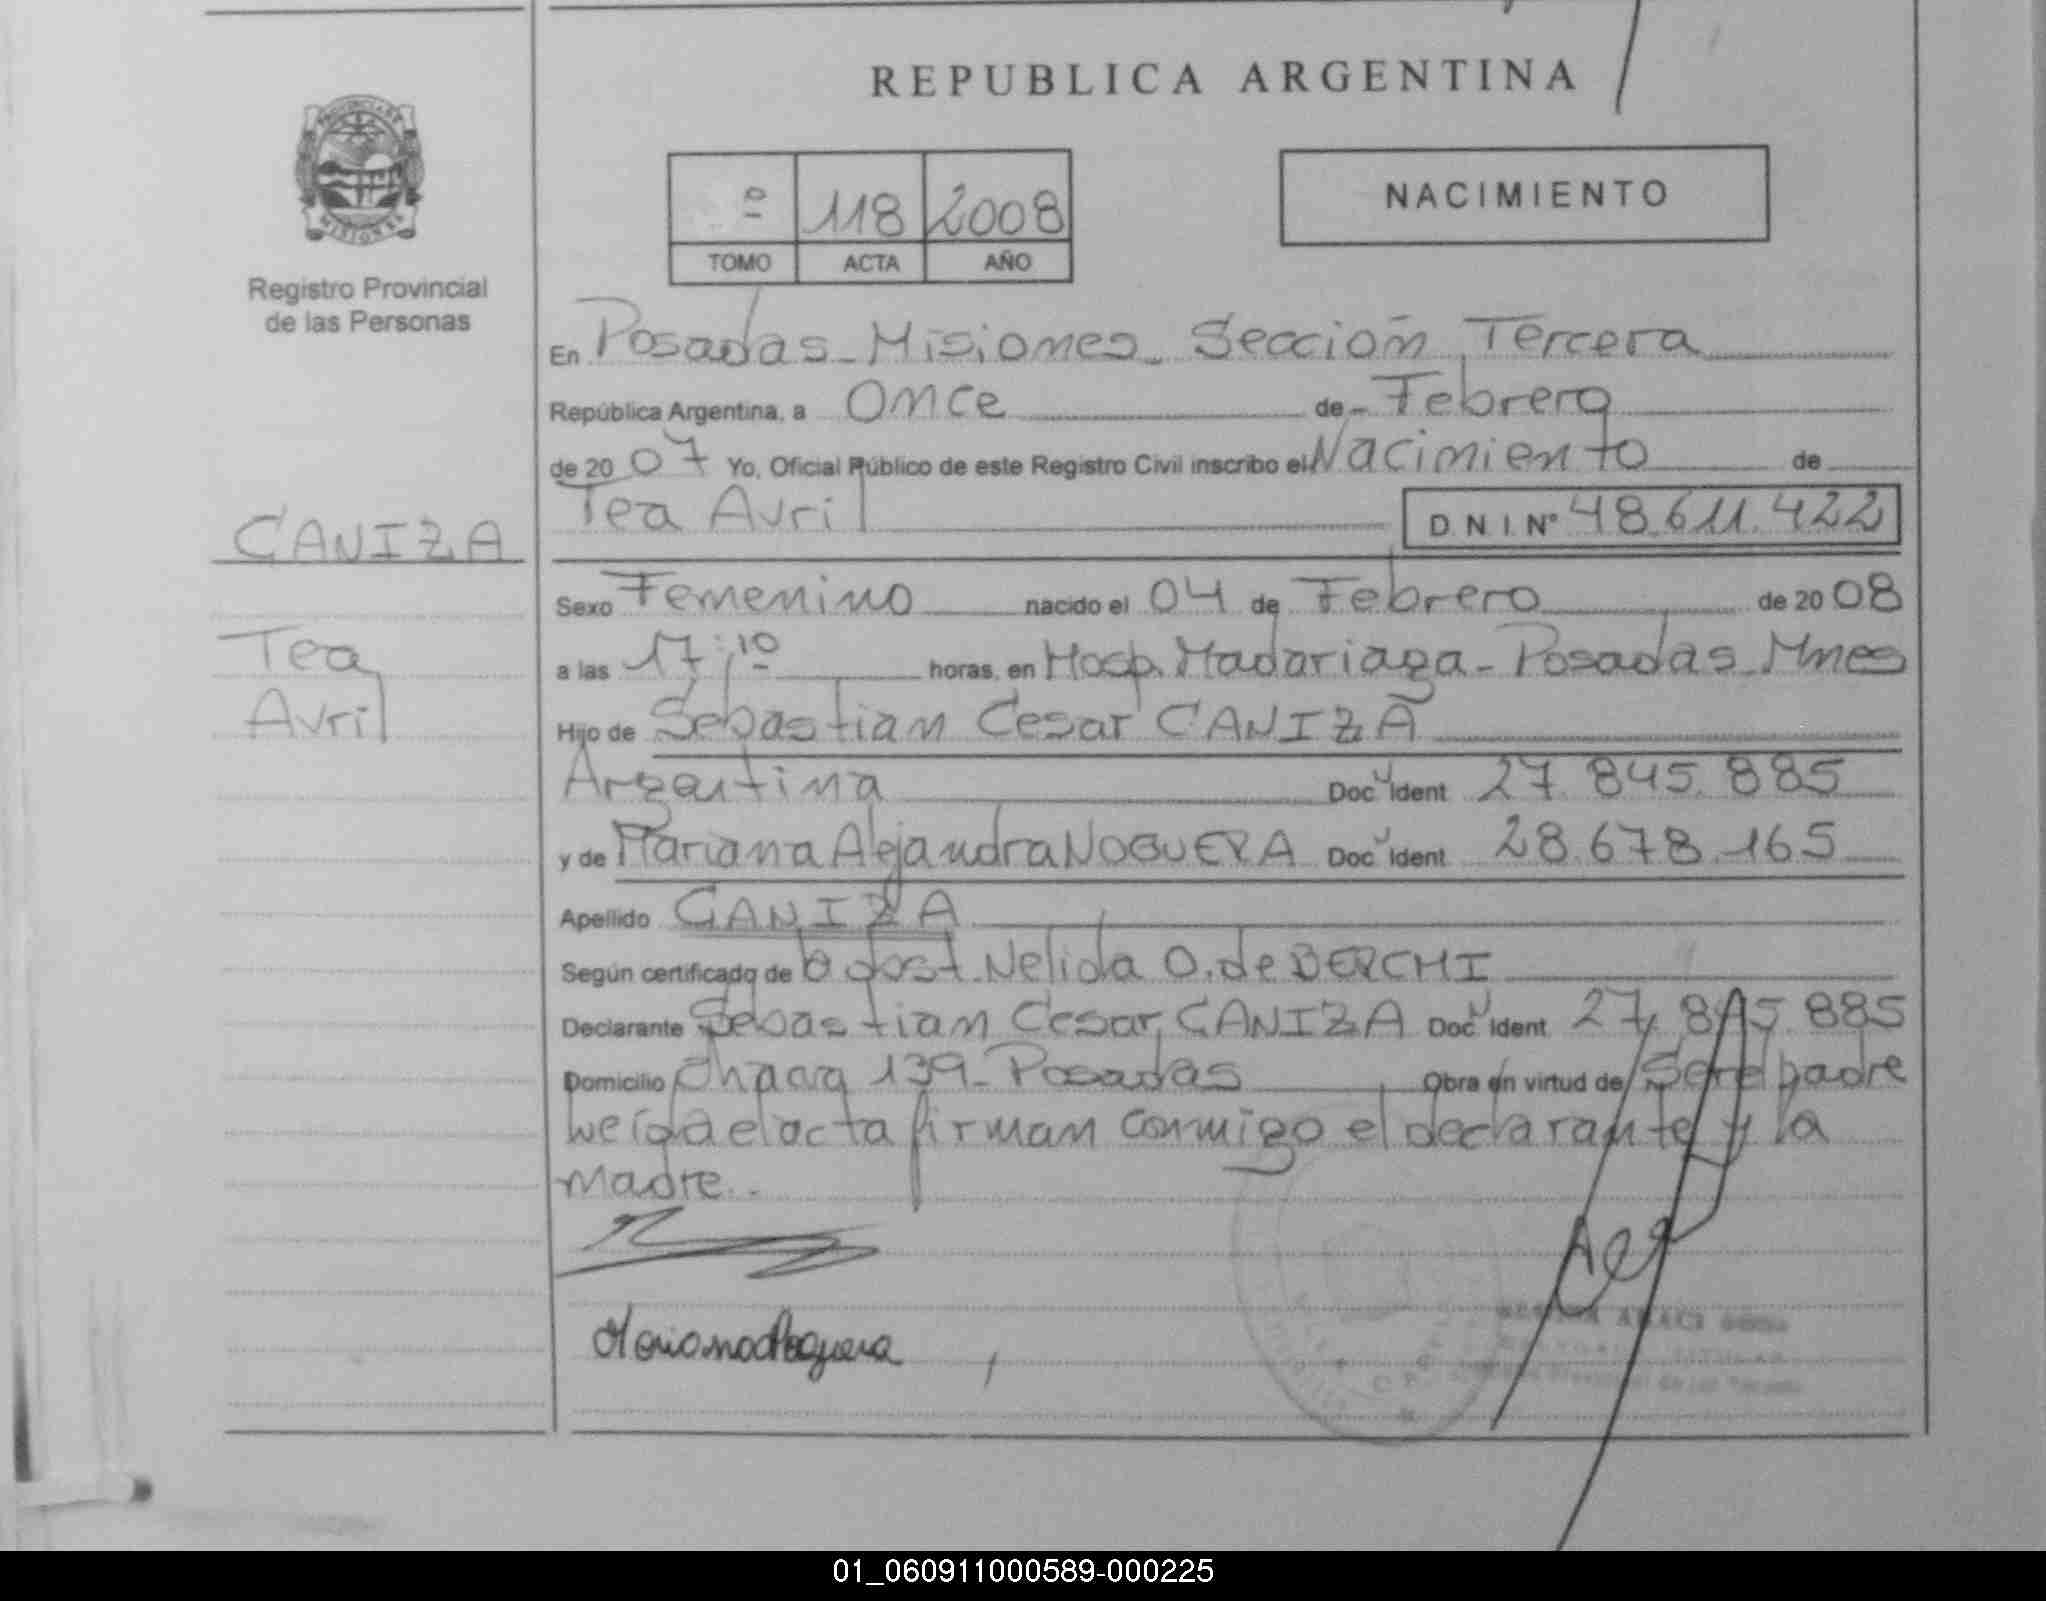 REPUBLICA ARGENTINA
PROVINCIA DE
MISIONES
Registro Provincial
de las Personas
º 118 2008
TOMO ACTA AÑO
NACIMIENTO
En Posadas - Misiones - Sección Tercera
República Argentina, a Once de Febrero
de 20 07 Yo, Oficial Público de este Registro Civil inscribo el Nacimiento de
CANIZA
Tea Avril D.N.I. Nº 48.611.422
Sexo Femenino nacido el 04 de Febrero de 20 08
Tea
Avril
a las 17:10 horas, en Hosp. Madariaga - Posadas Mnes
Hijo de Sebastian Cesar CANIZA
Argentina Doc Ident 27.845.885
y de Mariana Alejandra NOGUERA Doc Ident 28.678.165
Apellido CANIZA
Según certificado de Obst. Nelida O. de BERCHI
Declarante Sebastian Cesar CANIZA Doc Ident 27.845.885
Domicilio 139 - Posadas Obra en virtud de Ser el padre
Leída el acta firman conmigo el declarante y la
madre.
Mariana Noguera
01_060911000589-000225